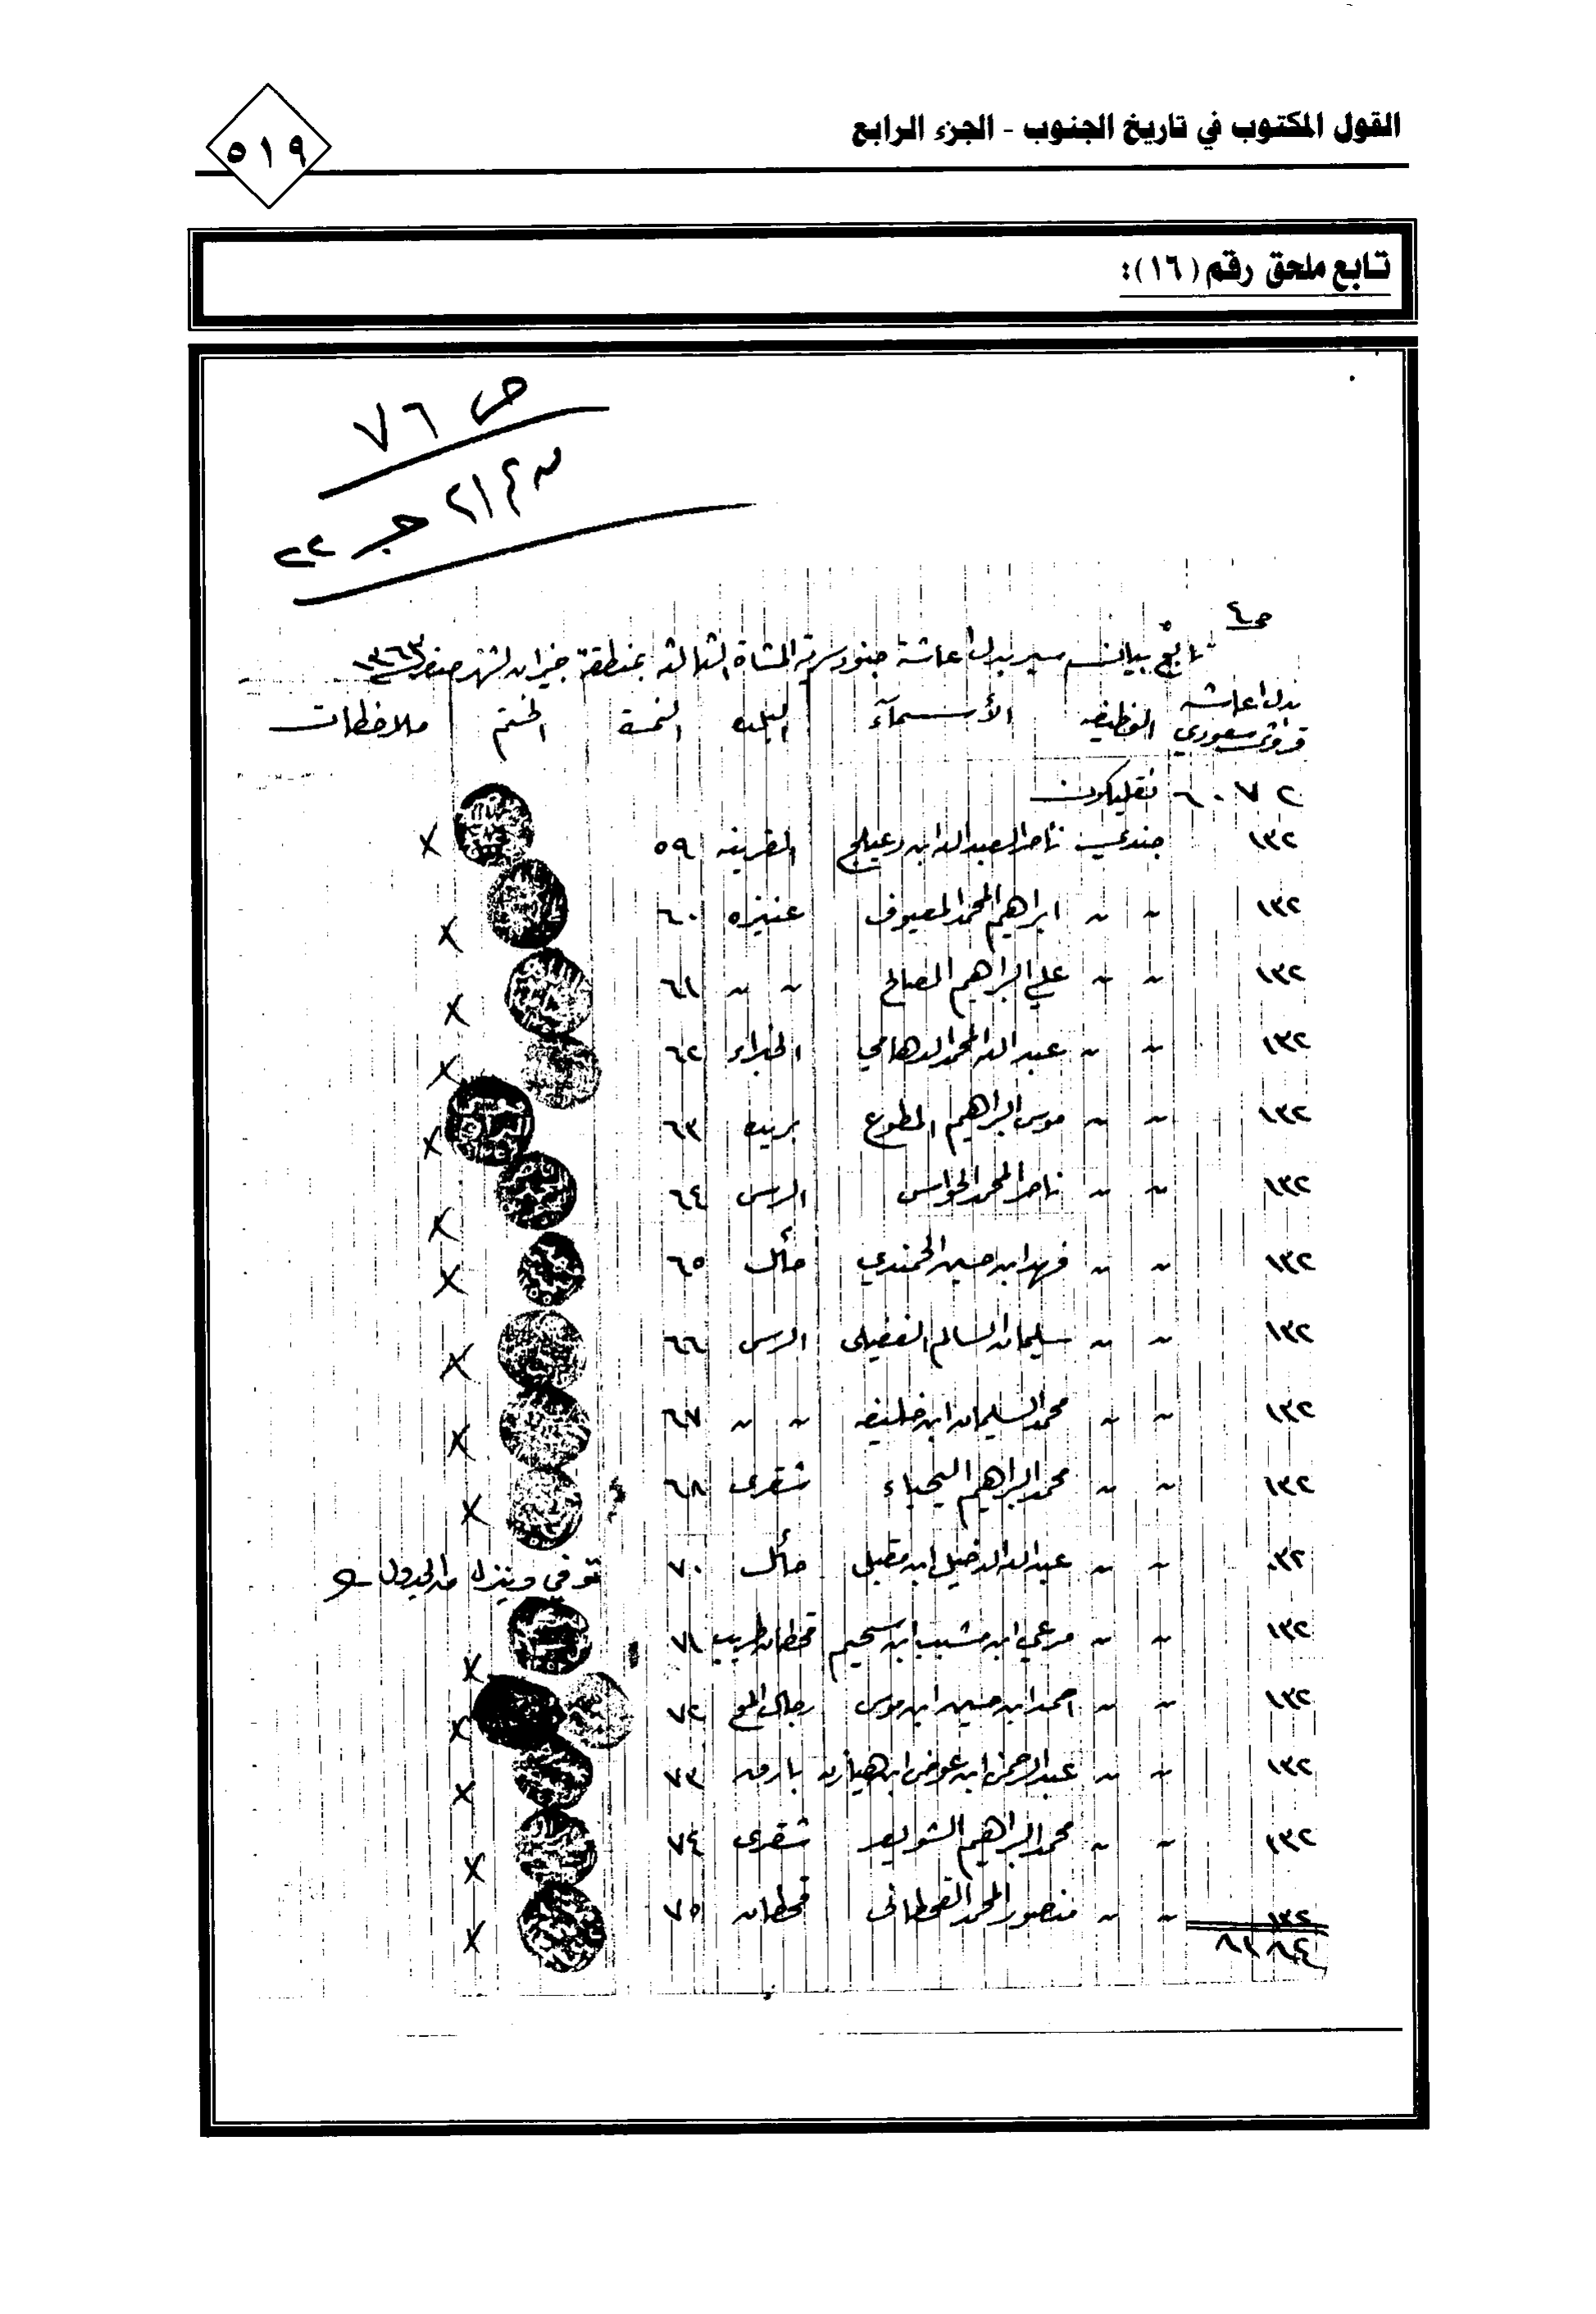 القول المكتوب في تاريخ الجنوب - الجزء الرابع
٥١٩
تابع ملحق رقم (١٦):
ص ٧٦
جـ ٢٢
ص٤
تابع بيان بدل اعاشة جنود سرية المشاة الثالثة بمنطقة جيزان لشهر صفر ١٣٦٣
بدل اعاشه قروش سعودي الوظيفه الأسمآء البلده النمرة الختم ملاحظات
٦٠٧٢
١٣٢ جندي ناصر العبدالله ابن دعيلج القرينه ٥٩ ×
١٣٢ 〃 〃 ابراهيم المحمد المعيوف عنيزه ٦٠ ×
١٣٢ 〃 〃 علي البراهيم الصالح 〃 〃 ٦١ ×
١٣٢ 〃 〃 عبدالله المحمد الدهامي الخبراء ٦٢ ×
١٣٢ 〃 〃 موسى البراهيم المطوع بريده ٦٣ ×
١٣٢ 〃 〃 ناصر المحمد الخواس الرس ٦٤ ×
١٣٢ 〃 〃 فهد ابن حسين حائل ٦٥ ×
١٣٢ 〃 〃 سليمان السالم الفضيلى الرس ٦٦ ×
١٣٢ 〃 〃 محمد السليمان ابن خليفه 〃 〃 ٦٧ ×
١٣٢ 〃 〃 محمد البراهيم اليحياء شقرى ٦٨ ×
٠٣٢ 〃 〃 عبدالله الدخيل ابن مقبل حائل ٧٠ توفي وينزل من الجدول
١٣٢ 〃 〃 مرعي ابن مشبب ابن سحيم قحطان طريب ٧١ ×
١٣٢ 〃 〃 احمد ابن حسين ابن موسى رجال المع ٧٢ ×
١٣٢ 〃 〃 عبدالرحمن ابن عوض ابن هيازن بارق ٧٣ ×
١٣٢ 〃 〃 محمد البراهيم الشويعر شقرى ٧٤ ×
١٣٢ 〃 〃 منصور المحمد القحطانى قحطان ٧٥ ×
٨١٨٤